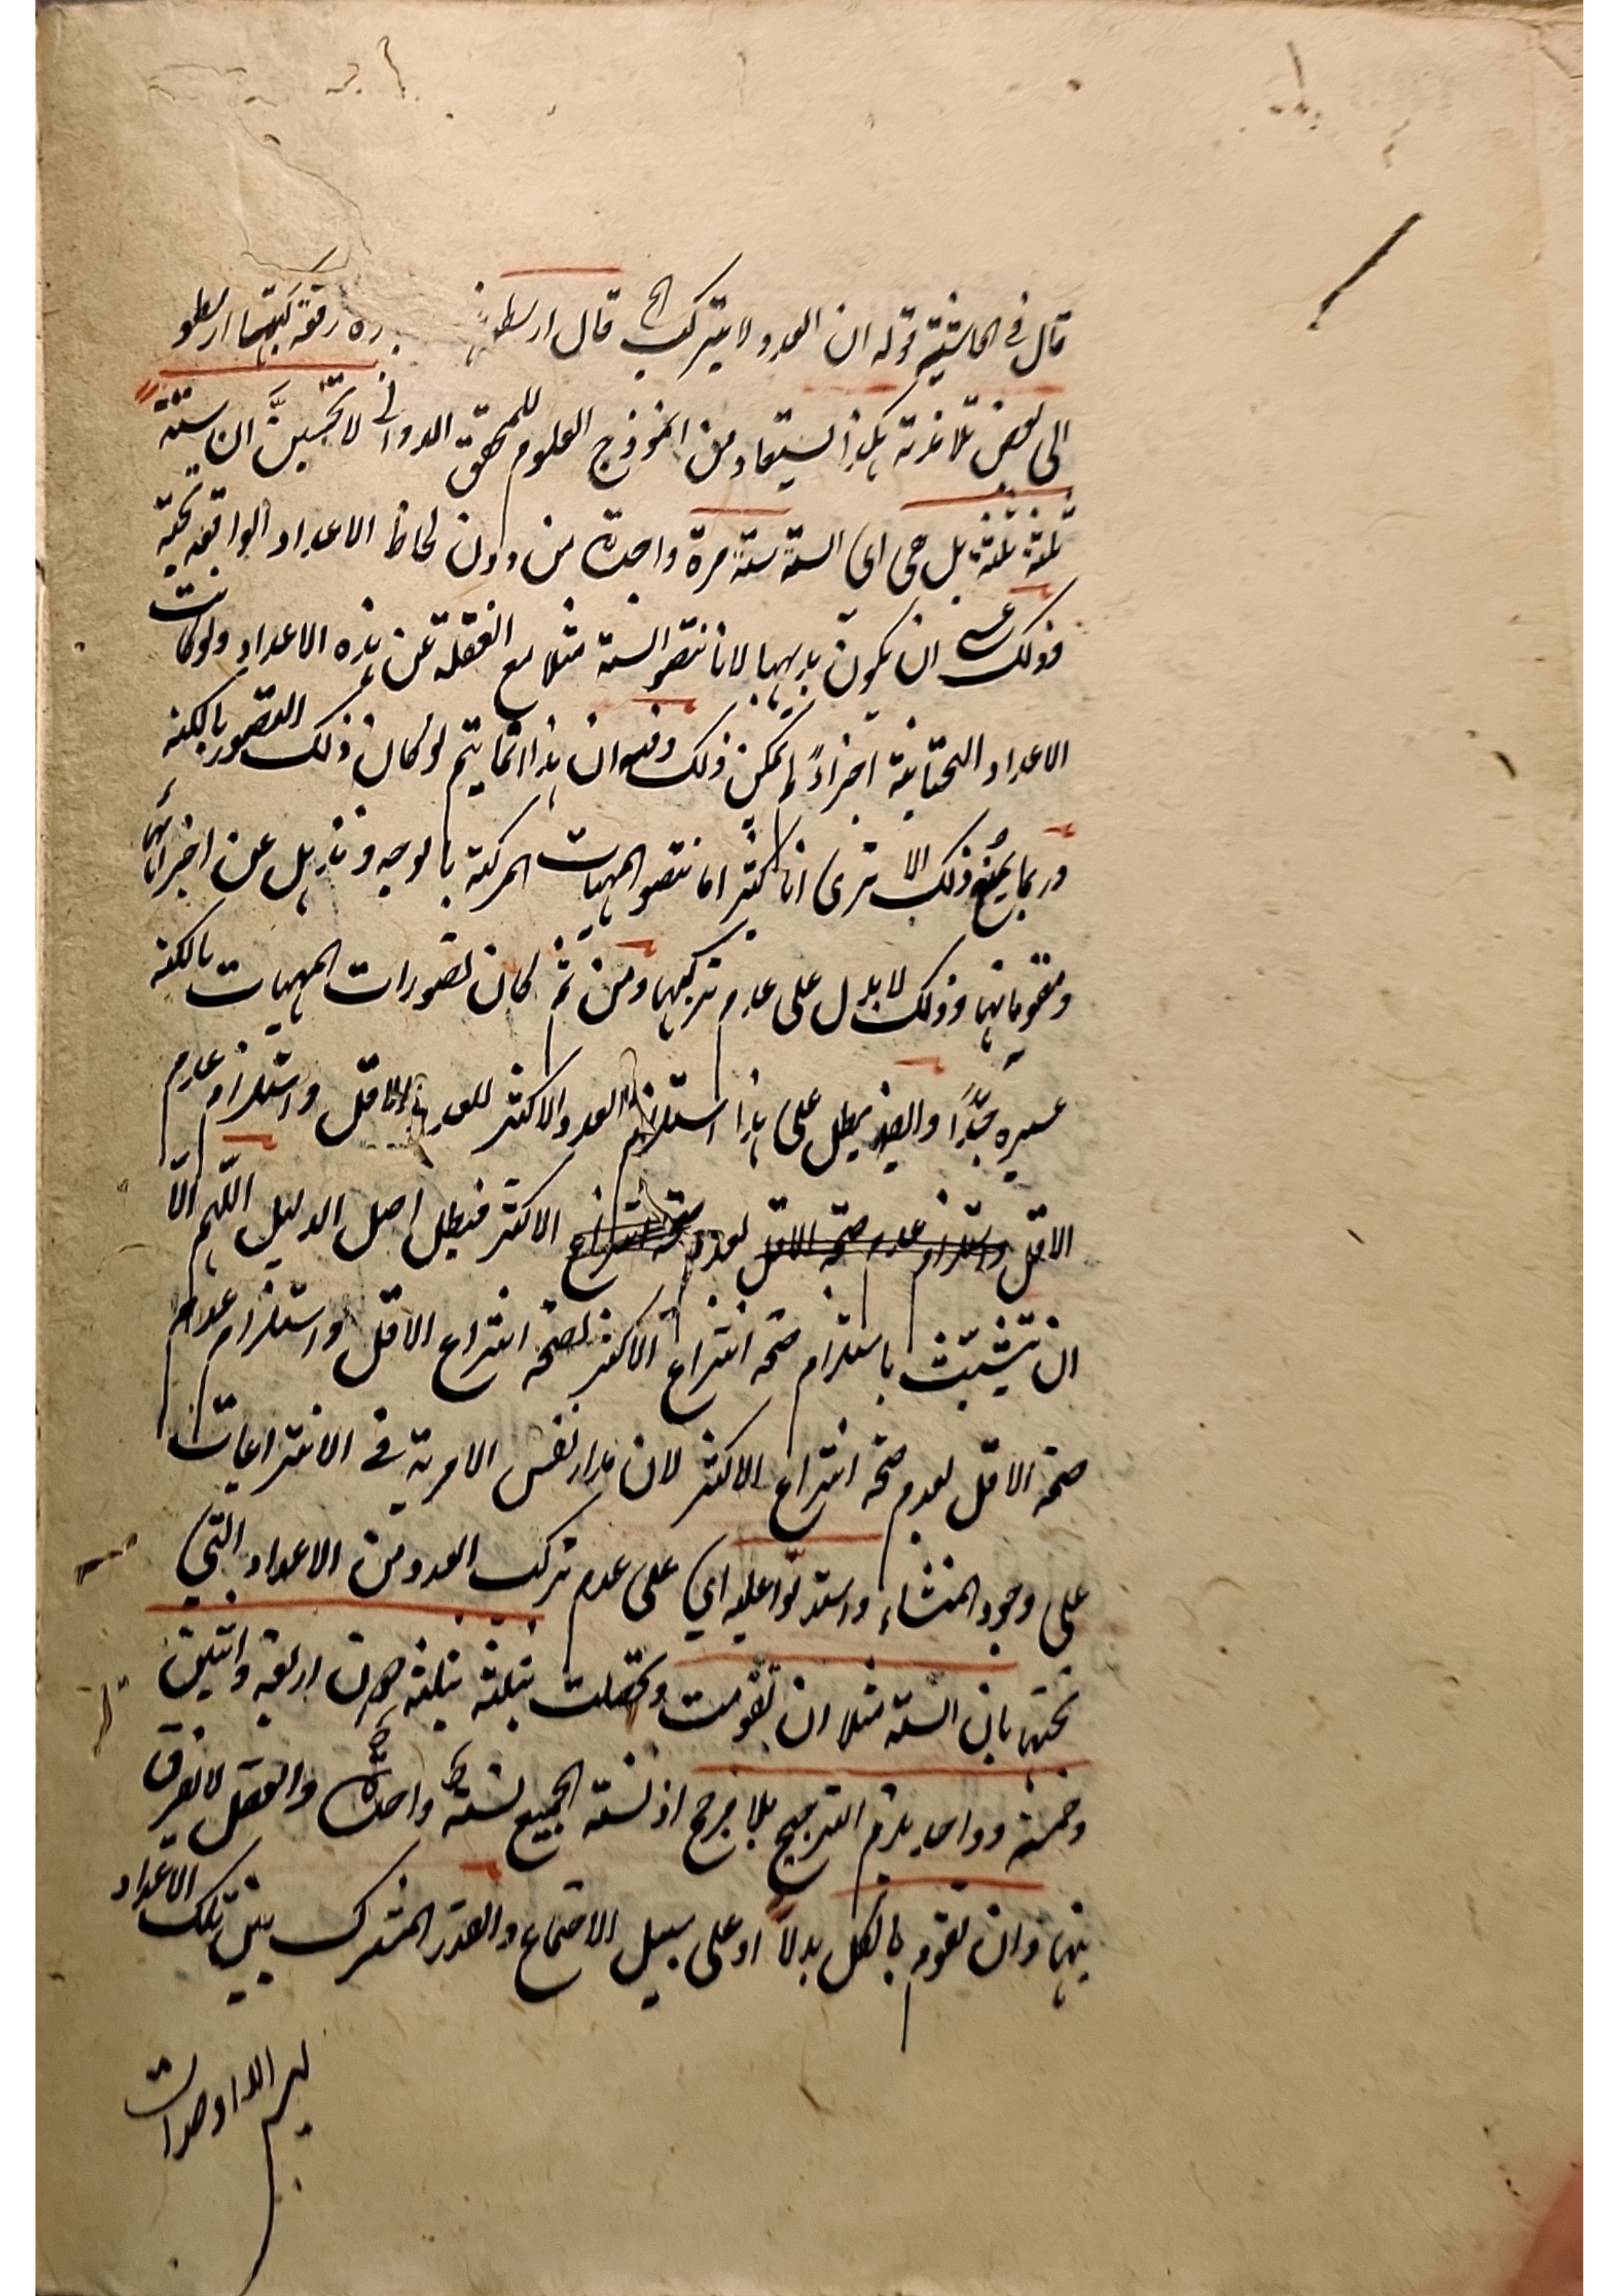 قال في الحاشية قوله ان العدد لا يتركب الخ قال ارسطو ره رقعة كتبها ارسطو
الى بعض تلامذته هكذا يستفاد من انموذج العلوم للمحقق الدواني لا تحسبنّ ان ستة
ثلثة ثلثة بل هى اى الستة ستة مرة واحدة من دون لحاظ الاعداد الواقعة تحته
فذلك عسى ان يكون بديهيا لانا نتصور الستة مثلا مع الغفلة عن هذه الاعداد ولو كانت
الاعداد التحتانية اجزاءً لم يمكن ذلك وفيه ان هذا انما يتم لو كان ذلك التصور بالكنه
وربما يمنع ذلك الا ترى انا كثيرا ما نتصور المهيات المركبة بالوجه ونذهل عن اجزائها
ومقوماتها وذلك لا يدل على عدم تركبها ومن ثم كان تصورات المهيات بالكنه
عسيره جدًا وايضا يبطل على هذا استلزام العدد الاكثر للعدد الاقل واستلزام عدم
الاقل واستلزام عدم صحة الاقل لعدم صحة انتزاع الاكثر فيبطل اصل الدليل اللهم الّا
ان يتشبث باستلزام صحة انتزاع الاكثر لصحة انتزاع الاقل واستلزام عدم
صحة الاقل لعدم صحة انتزاع الاكثر لان مدار نفس الامرية فى الانتزاعيات
على وجود المنشاء واستدلوا عليه اي على عدم تركب العدد من الاعداد التي
تحتها بان الستة مثلا ان تقومت وتحصلت بثلثة بثلثة دون اربعة واثنين
وخمسة وواحد يلزم الترجيح بلا مرجح اذ نسبة الجميع نسبة واحدة والعقل لا يفرق
بينها وان تقوم بالكل بدلاً او على سبيل الاجتماع والقدر المشترك بين تلك الاعداد
ليس الا الوحدات